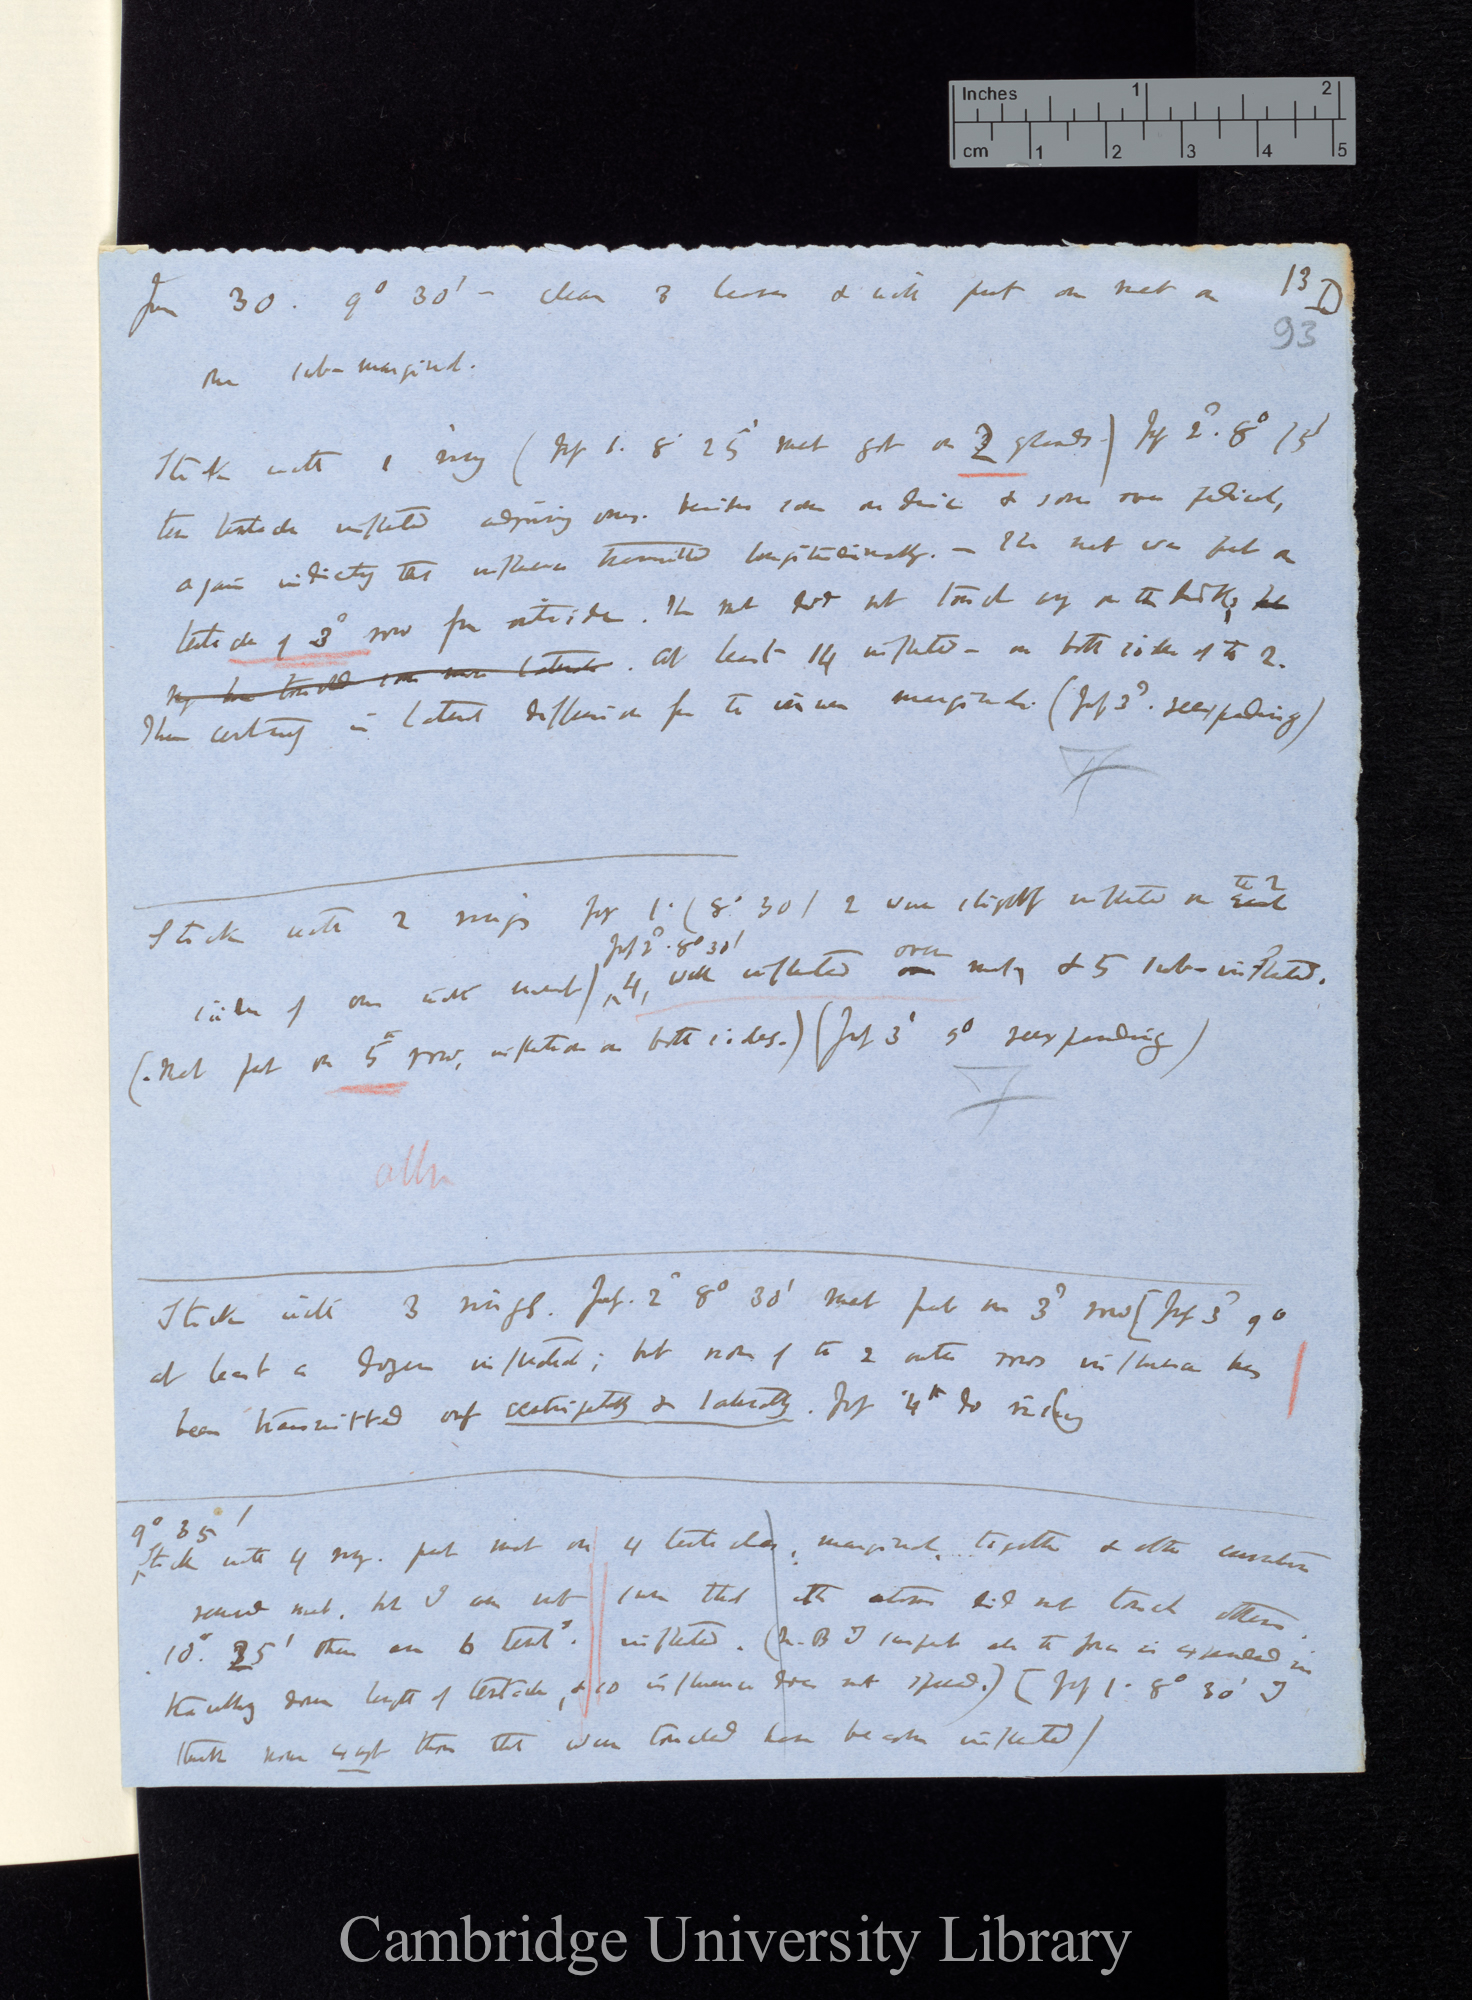 Inches 1 2
cm 1 2 3 4 5
13 D
June 30. 9° 30' – clean 3 leaves & will put on meat on
93
one sub-marginal.
Stick with 1 ring (July 1. 8° 25' meat got on 2 glands) July 2d. 8° 15'
ten tentacles inflected adjoining ones. besides some on disc & some over pedicel,
again indicating that influence transmitted longitudinally. – The meat was put on
tentacle of 3d row from outside. The meat did not touch any on the
At least 14 inflected – on both sides of the 2.
There certainly is lateral diffusion from the inner marginals. (July 3d. reexpanding)
Stick with 2 rings July 1. (8° 30' 2 were slightly inflected on the 2
July 2d. 8° 30'
sides of one with meat) 4, well inflected over meat, & 5 sub-inflected.
(Meat put on 5th row, inflection on both sides.) (July 3d 9° reexpanding)
Stick with 3 rings. July. 2d 8° 30' meat put on 3d row [July 3d 9°
at least a dozen inflected; but none of the 2 outer rows influence has
been transmitted only centripetally & laterally. July 4th do
9° 35'
Stick with 4 rings. put meat on 4 tentacles, marginal, together & other
round meat, but I am not sure that the atoms did not touch others.
10° 35' there are 6 tent. inflected. (N.B I suspect all the force is expended in
travelling down length of tentacle, & so influence does not spread.) [July 1. 8° 30' I
think none except those that were touched have become inflected)
Cambridge University Library